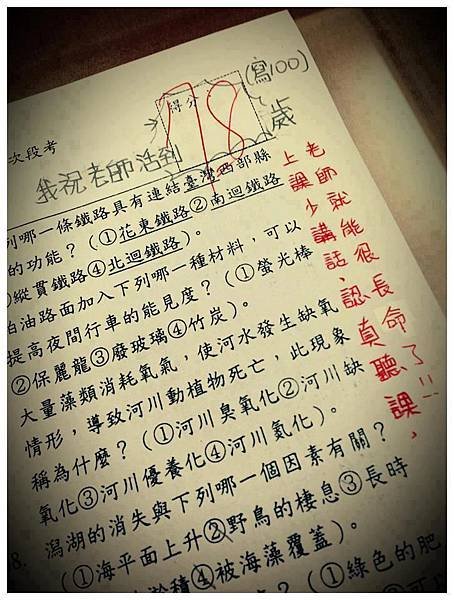 次段考
得分
78
(寫100)
我祝老師活到
歲
上課少講話、認真聽課,
老師就能很長命了!!
列哪一條鐵路具有連結臺灣西部縣
的功能?(①花東鐵路②南迴鐵路
縱貫鐵路④北迴鐵路)。
柏油路面加入下列哪一種材料,可以
提高夜間行車的能見度?(①螢光棒
②保麗龍③廢玻璃④竹炭)。
大量藻類消耗氧氣,使河水發生缺氧
情形,導致河川動植物死亡,此現象
稱為什麼?(①河川臭氧化②河川缺
氧化③河川優養化④河川氮化)。
8. 潟湖的消失與下列哪一個因素有關?
(①海平面上升②野鳥的棲息③長時
淤積④被海藻覆蓋)。
?(①綠色的肥